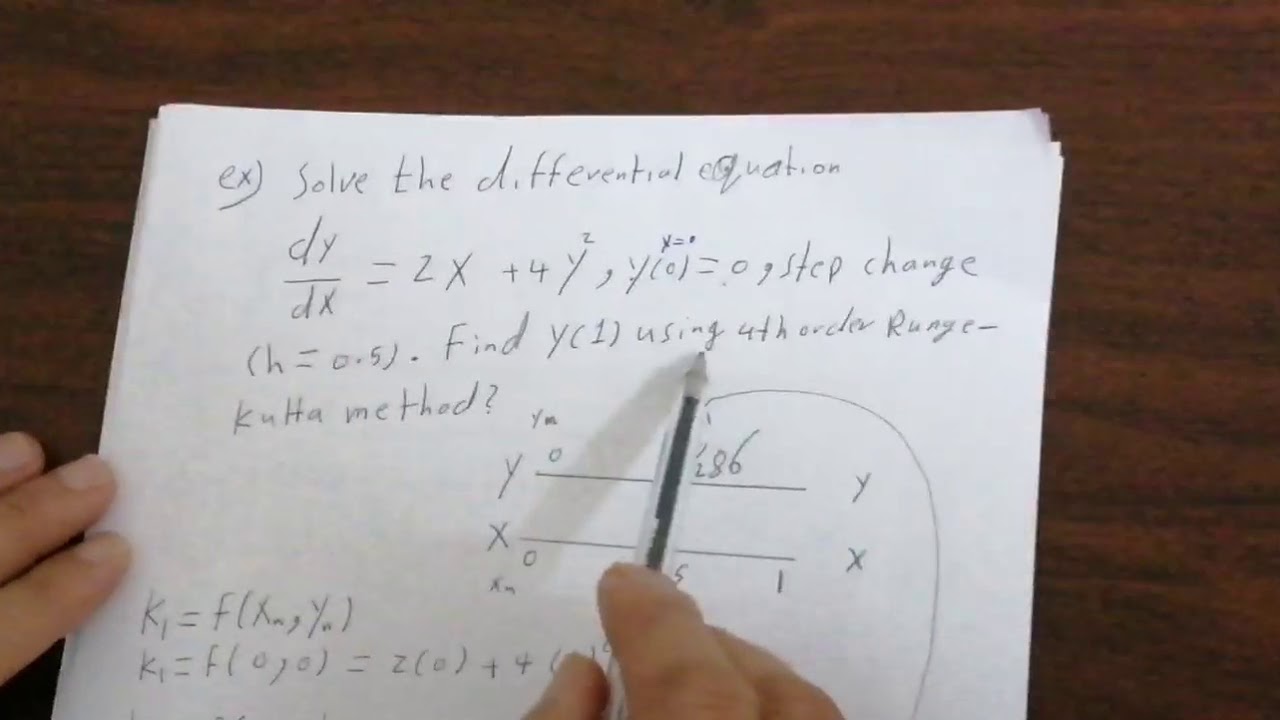 ex) Solve the differential equation
x=0
dy/dx = 2x + 4y², y(0) = 0, step change
(h = 0.5). Find y(1) using 4th order Runge-
kutta method?
yn
0 286
y y
x x
0 5 1
xn
K₁ = f(xn, yn)
K₁ = f(0,0) = 2(0) + 4